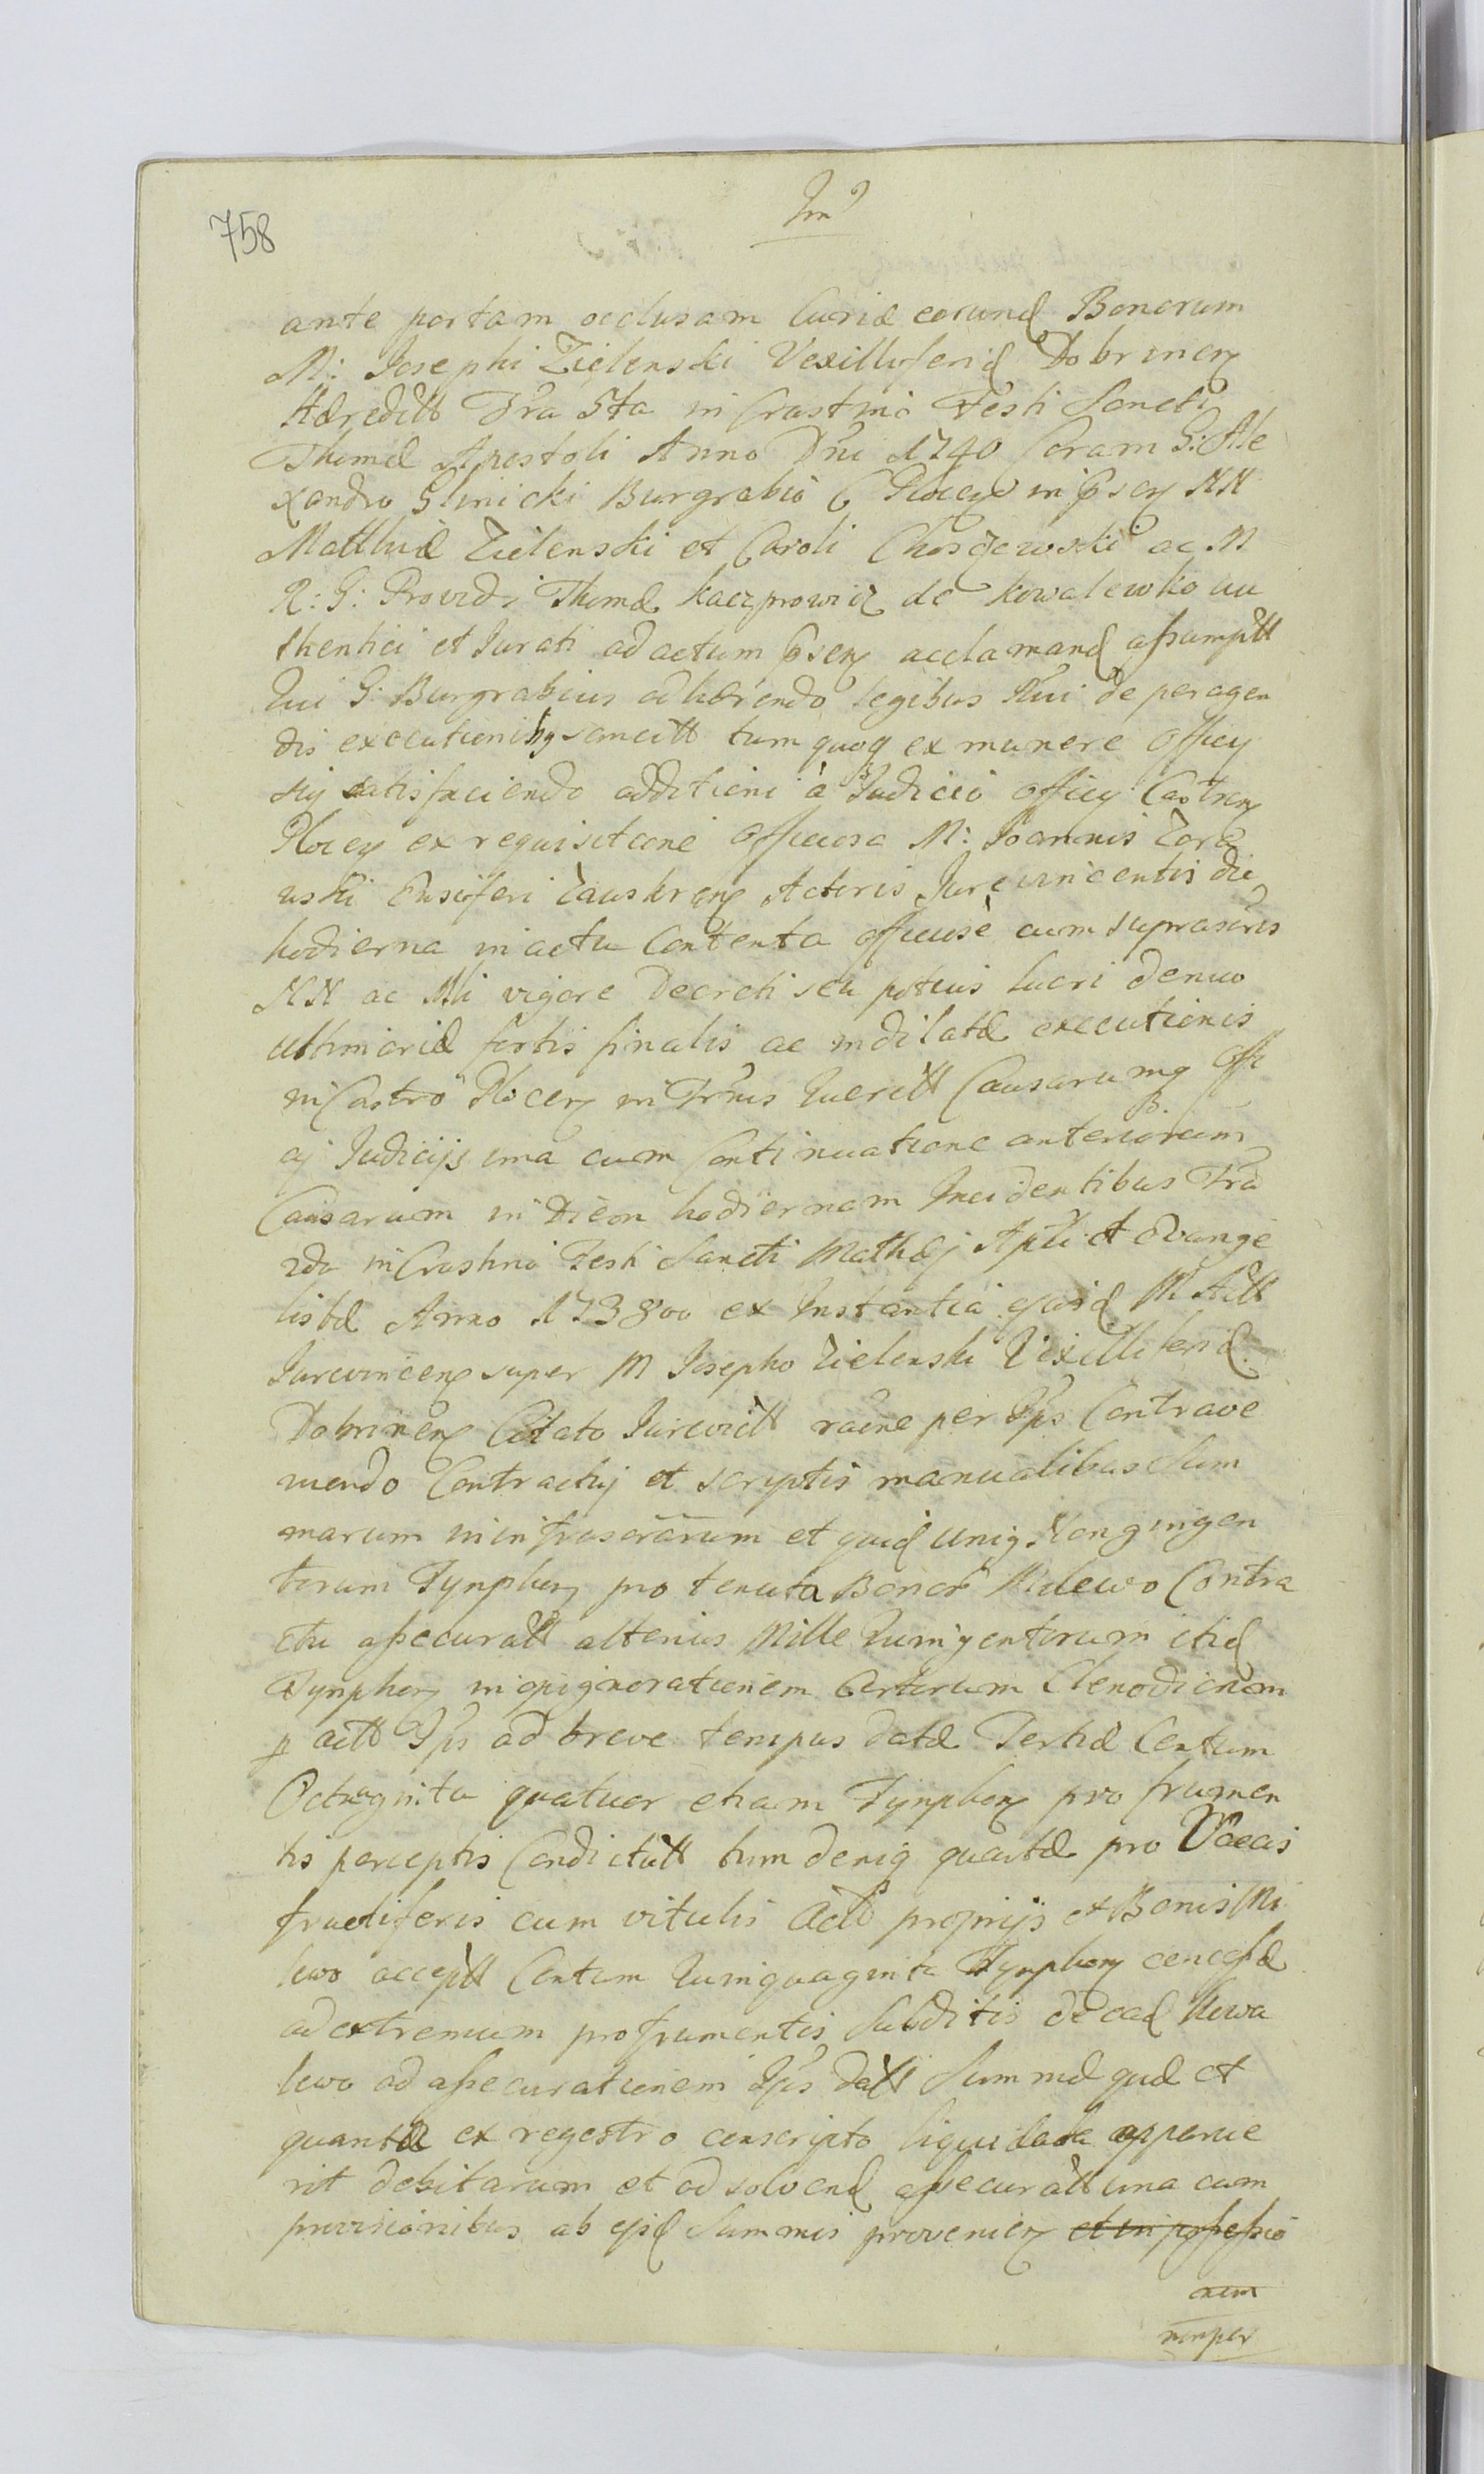 758
ante portam oclusam Curiæ eorund Bonorum
M: Josephi Zielenski Vexilliferid Dobrinen
Hæreditt Fra 5ta in Crastino Festi Sancti
Thomæ Apostoli Anno Dni 1740 Coram G: Ale
xandro Glinicki Burgrabio C Plocen in Psen NN
Matthiæ Zielenski et Caroli ac M
R: G: Providi Thomæ Kaczprowicz de Kowalewko au
thentici et Jurati ad actum Psen acclamand assumptt
Qui G: Burgrabius adhærendo legibus Rni de peragen
dis executionibq sancitt tum quoq ex munere Officij
sui satisfaciendo additioni à Judicio officij Castren
Plocen ex requisitione Officiosa M: Joannis Zara
uski Ensiferi Zauskren Actoris Jurevincentis die
hodierna in actu Contenta officiosè cum suprascris
NN ac Mli vigore Decreti seu potius lucri denuo
ultimariæ fortis finalis ac indilatæ executionis
in Castro Plocen in Frnis Querett Causarumq Offi
cij Judicijs una cum Continuatione anteriorum
Causarum in Diem hodiernam Incidentibus Fra
2da in Crastino Festi Sancti Mathæj Apli et Evange
listæ Anno 1738vo ex Instantia ejusd M Actt
Jurevincen super M Josepho Zielenski Vexilliferid
Dobrinen Citato Jurevictt raõne per Ips Contrave
niendo Contractuj et scriptis manualibus Sum
marum in infrascrarum et quid
torum Tynphon pro tenuta Bonor Milewo Contra
ctu assecuratt alterius Mille Quingentorum itid
Tynphon in opignorationem Certorum Clenodiorum
p actt Ips ad breve tempus datæ Tertiæ Centum
Octuaginta quatuor etiam Tynphon pro frumen
tis perceptis Condictatt tum deniq quartæ pro Vaccis
fructiferis cum vitulis Actt proprijs et Bonis Mi
lewo acceptt Centum Quinquaginta Tynphon
ad extremum pro frumentis Subditis de ead Kowa
lewo ad assecurationem Ips datt Summæ quæ et
quantæ ex regestro conscripto liquidata apparue
rit debitarum et ad solvend assecuratt una cum
provisionibus ab ejsd Summis provenien et in possessio
nem
nonper